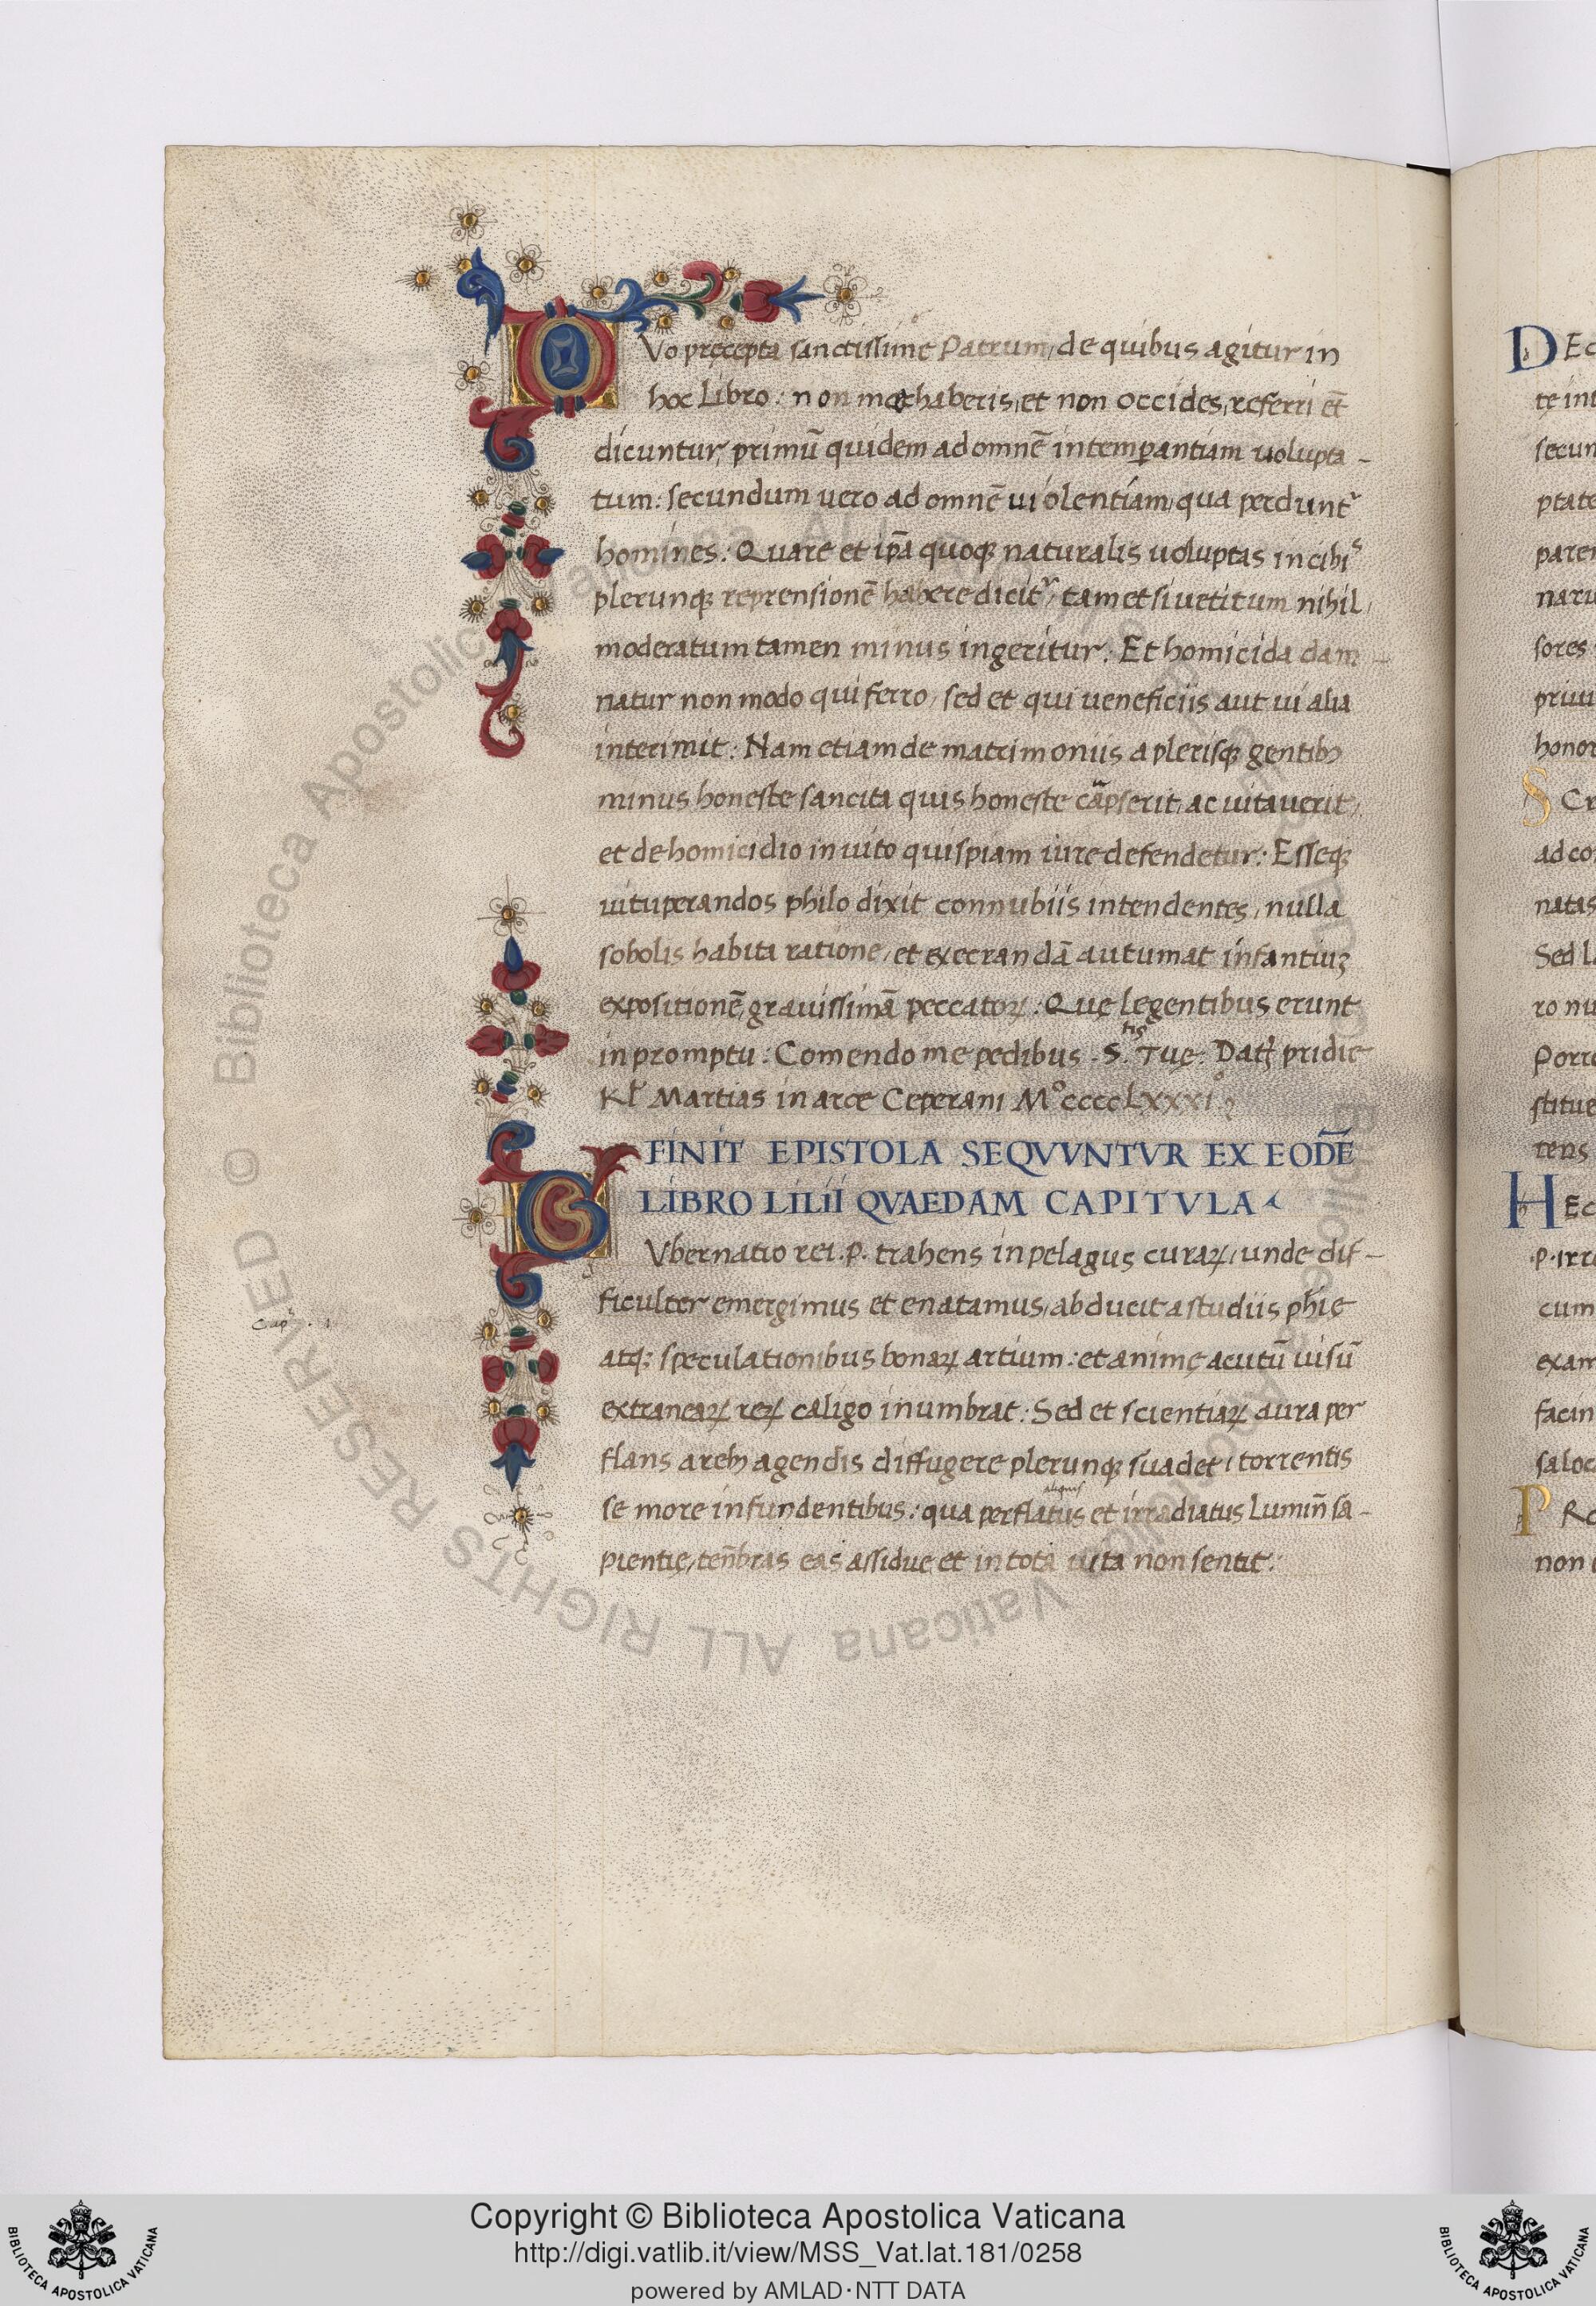 DVo pręcepta sanctissime Patrum, de quibus agitur in
hoc Libro: non mœchaberis, et non occides, referri et̄
dicuntur, primū quidem ad omnē intemꝑantiam uolupta-
tum: secundum uero ad omnē uiolentiam, qua perduntʳ
homines: Quare et ip̄a quoqꝫ naturalis uoluptas in cibiˢ
plerunqꝫ reprensionē habere dicitʳ, tametsi uetitum nihil,
moderatum tamen minus ingeritur: Et homicida dam-
natur non modo qui ferro, sed et qui ueneficiis aut ui alia
interimit: Nam etiam de matrimoniis a plerisqꝫ gentibꝫ
minus honeste sancita quis honeste
et de homicidio inuito quispiam iure defendetur: Esseqꝫ
uituperandos philo dixit connubiis intendentes, nulla
sobolis habita ratione, et execrandā autumat infantiuꝫ
expositionē, grauissimā peccatoꝝ: Quę legentibus erunt
in promptu: Comendo me pedibus .S.tis Tuę. Datꝭ pridie
Kl̄ Martias in arce Ceperani M°ccccLxxxi°
FINIT EPISTOLA SEQVVNTVR EX EODE̅
LIBRO LILII QVAEDAM CAPITVLA
GVbernatio rei .P. trahens in pelagus curaꝝ, unde dif-
ficulter emergimus et enatamus, abducit a studiis phīę
atqꝫ speculationibus bonaꝝ artium: et animę acutū uisū
extraneaꝝ reꝝ caligo inumbrat: Sed et scientiaꝝ aura per
flans a rebꝫ agendis diffugere plerunqꝫ suadet, torrentis
se more infundentibus: qua perflatus aliquis et irradiatus Lumin̄ sa-
pientię, ten̄bras eas assidue et in tota uita non sentit:
Cap. 1
DEc
te int
secun
ptate
paren
naru
sores
priu
honor
SCr
ad co
natas
Sed l
ro nu
Porro
stitue
tens
HEc
.P. irr
cum
exam
facin
sa loc
PRo
non
Copyright © Biblioteca Apostolica Vaticana
http://digi.vatlib.it/view/MSS_Vat.lat.181/0258
powered by AMLAD·NTT DATA
BIBLIOTECA APOSTOLICA VATICANA
BIBLIOTECA APOSTOLICA VATICANA
© Biblioteca Apostolica Vaticana ALL RIGHTS RESERVED